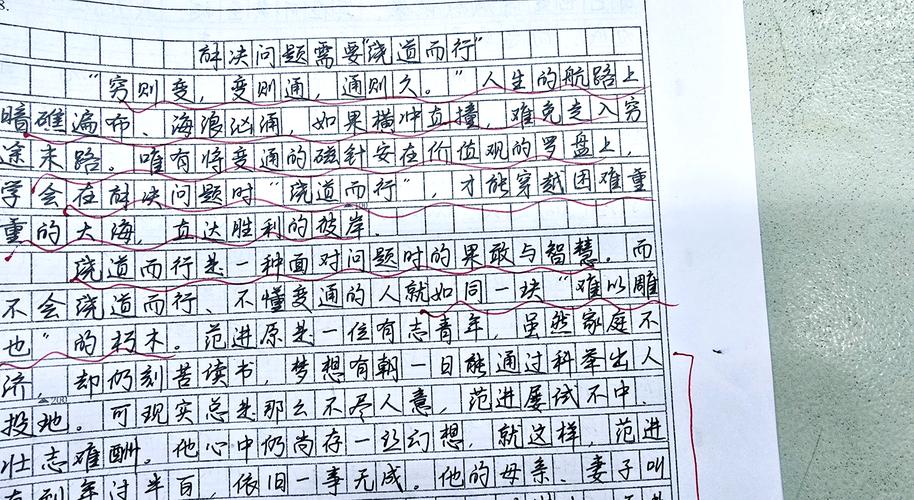 8.
解决问题需要"绕道而行"
"穷则变，变则通，通则久。"人生的航路上
暗礁遍布、海浪汹涌，如果横冲直撞，难免走入穷
途末路。唯有将变通的磁针安在价值观的罗盘上，
学会在解决问题时"绕道而行"，才能穿越困难重
重的大海，直达胜利的彼岸.
绕道而行是一种面对问题时的果敢与智慧.而
不会绕道而行、不懂变通的人就如同一块"难以雕
也"的朽木。范进原是一位有志青年，虽然家庭不
济，却仍刻苦读书，梦想有朝一日能通过科举出人
▲200
投地。可现实总是那么不尽人意，范进屡试不中，
壮志难酬。他心中仍尚存一丝幻想，就这样，范进
年过半百，依旧一事无成。他的母亲、妻子叫